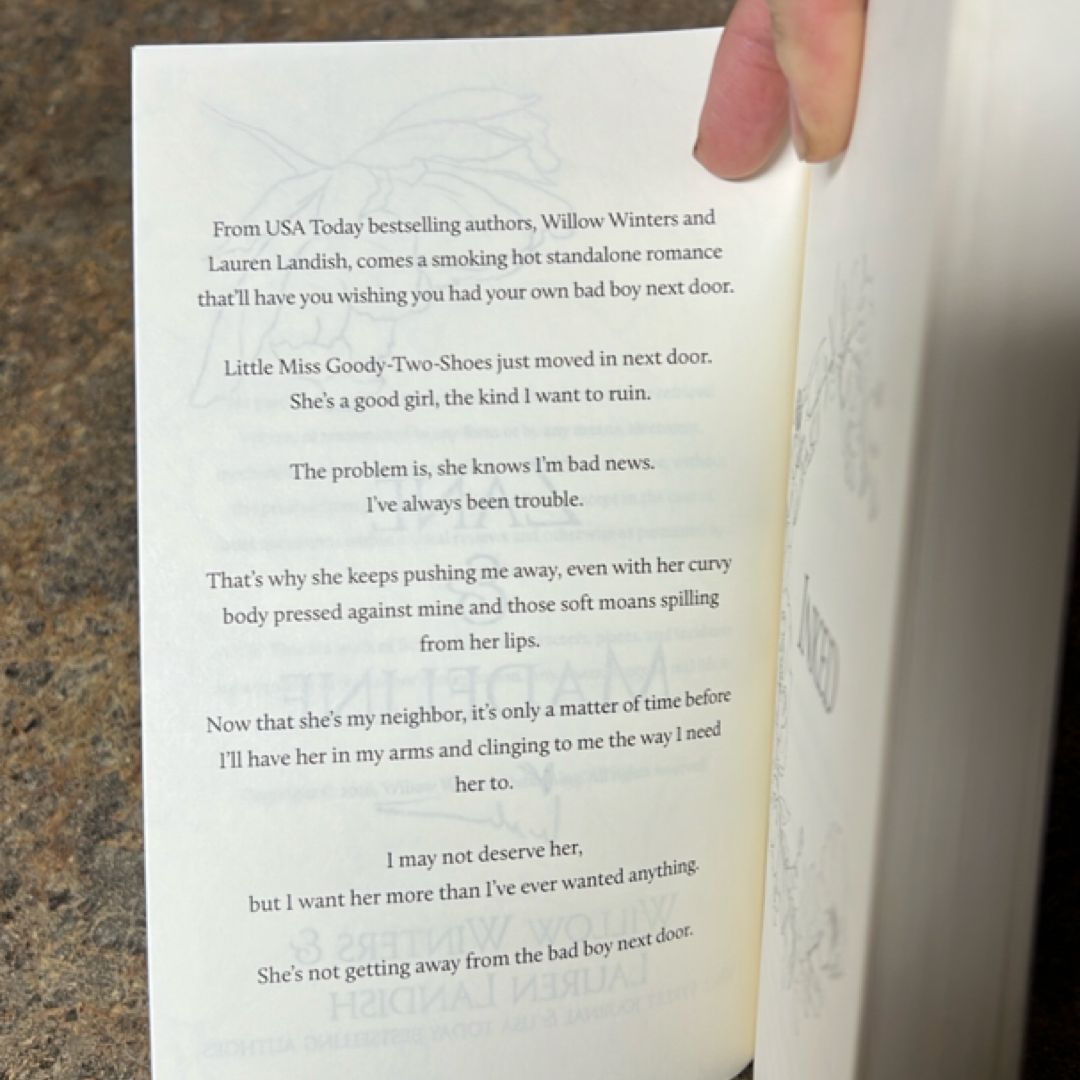 From USA Today bestselling authors, Willow Winters and
Lauren Landish, comes a smoking hot standalone romance
that'll have you wishing you had your own bad boy next door.
Little Miss Goody-Two-Shoes just moved in next door.
She's a good girl, the kind I want to ruin.
The problem is, she knows I'm bad news.
I've always been trouble.
That's why she keeps pushing me away, even with her curvy
body pressed against mine and those soft moans spilling
from her lips.
Now that she's my neighbor, it's only a matter of time before
I'll have her in my arms and clinging to me the way I need
her to.
I may not deserve her,
but I want her more than I've ever wanted anything.
She's not getting away from the bad boy next door.
ZANE
&
MADELINE
WILLOW WINTERS &
LAUREN LANDISH
INKED